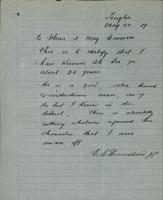 Tingha
May 20 19
To Whom it May Concern
This is to certify that I
have known Ah See for
about 20 years.
He is a good, sober, hard
industrious man, one of
the best I know in the
district. There is absolutely
nothing whatever against his
character that I am
aware off
J.P.